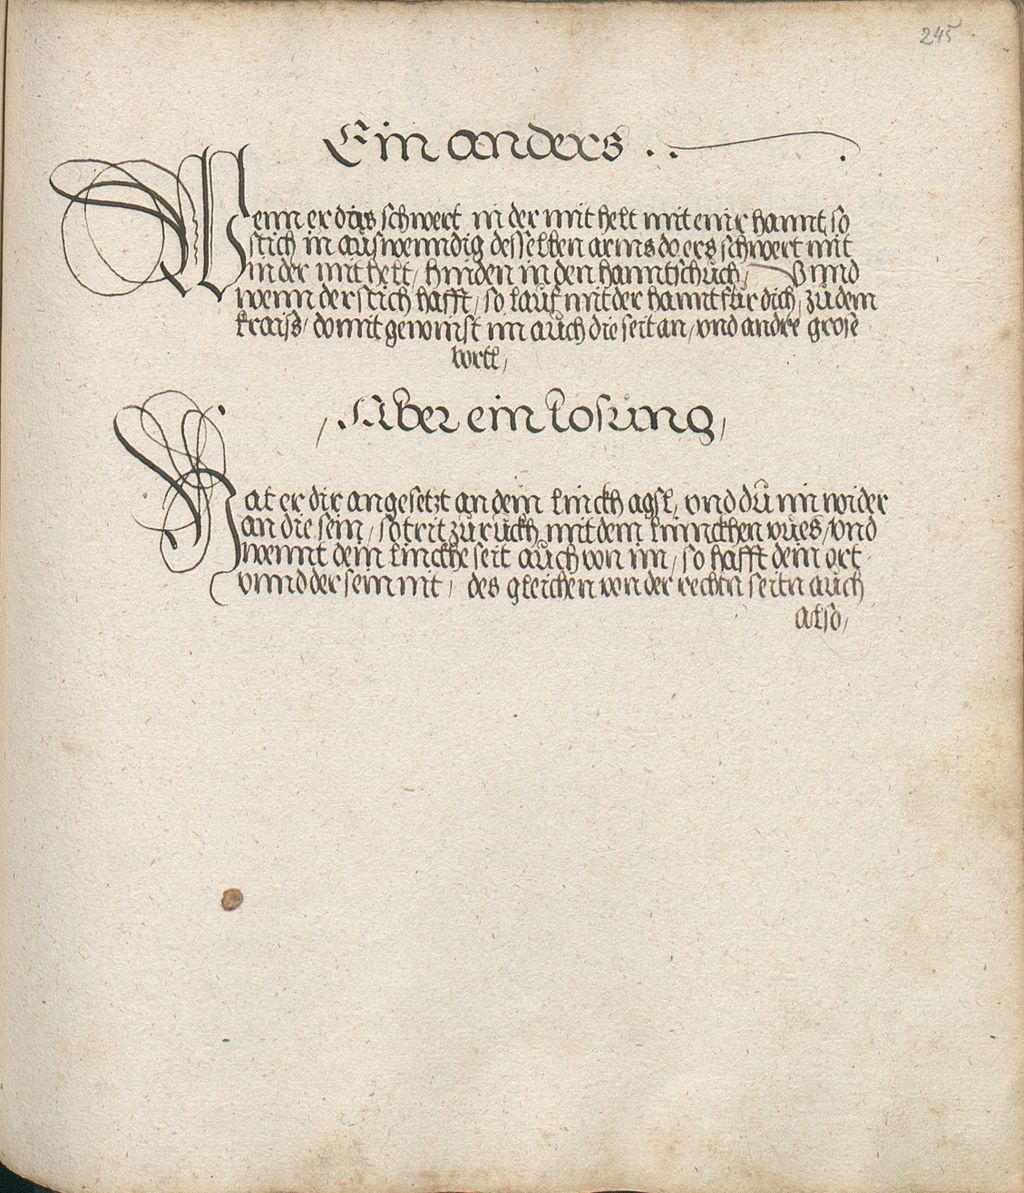 245
Ein anders . .
Wenn er das schwert in der mit helt mit einr hannt, so
stich in auswenndig desselben arms do ers schwert mit
in der mit helt / hinden in den hanntschůch / Vnnd
wenn der stich hafft / so lauf mit der hannt für dich / zů dem
kraiß / domit gewinst im aůch die seit an / vnd andre grose
vortl /
/ Aber ein losung /
Hat er dir angesetzt an dein linckh agsl / vnd dů im wider
an die sein / so trit zůrůckh mit dem linnckhen vůes / vnd
wennt dein linckhe seit aůch von im / so hafft dein ort
vnnd der sein nit / des gleichen von der rechtn seitn aůch
also /